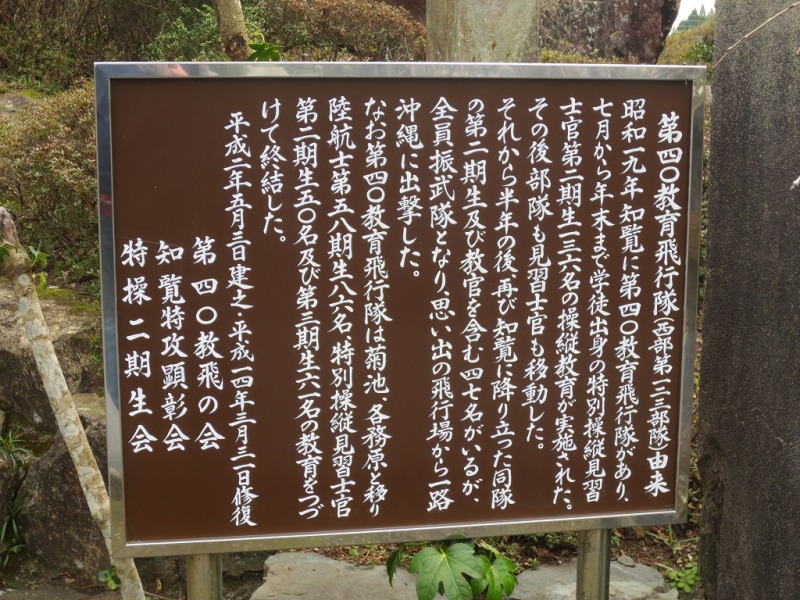 第四〇教育飛行隊（西部第一二三部隊）由来
昭和一九年知覧に第四〇教育飛行隊があり、
七月から年末まで学徒出身の特別操縦見習
士官第二期生一三六名の操縦教育が実施された。
その後部隊も見習士官も移動した。
それから半年の後、再び知覧に降り立った同隊
の第二期生及び教官を含む四七名がいるが、
全員振武隊となり、思い出の飛行場から一路
沖縄に出撃した。
なお第四〇教育飛行隊は菊池、各務原と移り
陸航士第五八期生八六名、特別操縦見習士官
第二期生五〇名及び第三期生六一名の教育をつづ
けて終結した。
平成二年五月三日建之・平成一四年三月三一日修復
第四〇教飛の会
知覧特攻顕彰会
特操二期生会